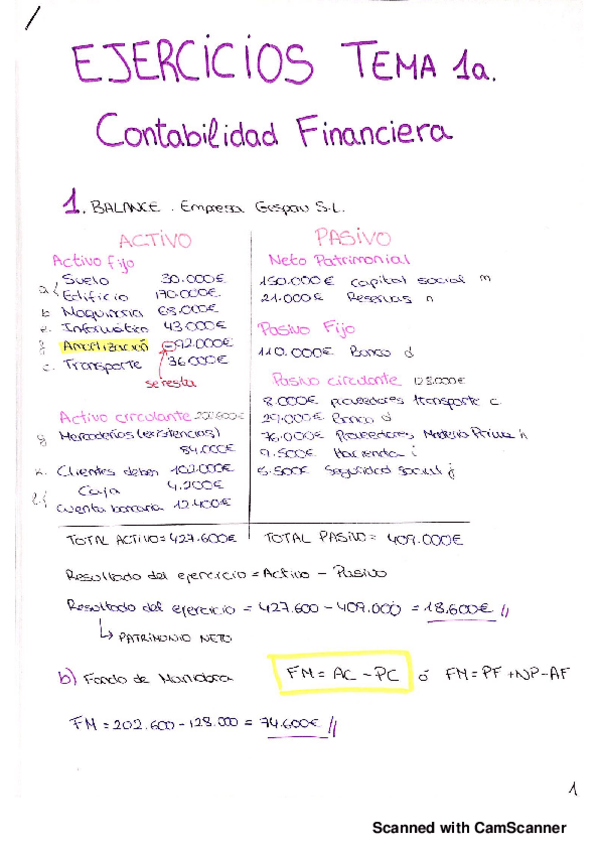 EJERCICIOS TEMA 1a.
Contabilidad Financiera
1. BALANCE. Empresa Grispau S.L.
ACTIVO
Activo fijo
a. Suelo 30.000€
Edificio 170.000€
b. Maquinaria 65.000€
e. Informático 43.000€
f. Amortización -92.000€
c. Transporte 36.000€
se resta
Activo circulante 202.600€
g Mercaderías (existencias)
84.000€
k. Clientes deben 102.000€
l. Caja 4.200€
Cuenta bancaria 12.400€
TOTAL ACTIVO = 427.600€
PASIVO
Neto Patrimonial
150.000€ capital social m
21.000€ Reservas n
Pasivo Fijo
110.000€ Banco d
Pasivo circulante 128.000€
8.000€ proveedores transporte c
29.000€ Banco d
76.000€ Proveedores Materia Prima h
9.500€ Hacienda i
5.500€ Seguridad social j
TOTAL PASIVO = 409.000€
Resultado del ejercicio = Activo - Pasivo
Resultado del ejercicio = 427.600 - 409.000 = 18.600€ //
↳ PATRIMONIO NETO
b) Fondo de Maniobra FM = AC - PC ó FM = PF + NP - AF
FM = 202.600 - 128.000 = 74.600€ //
1
Scanned with CamScanner